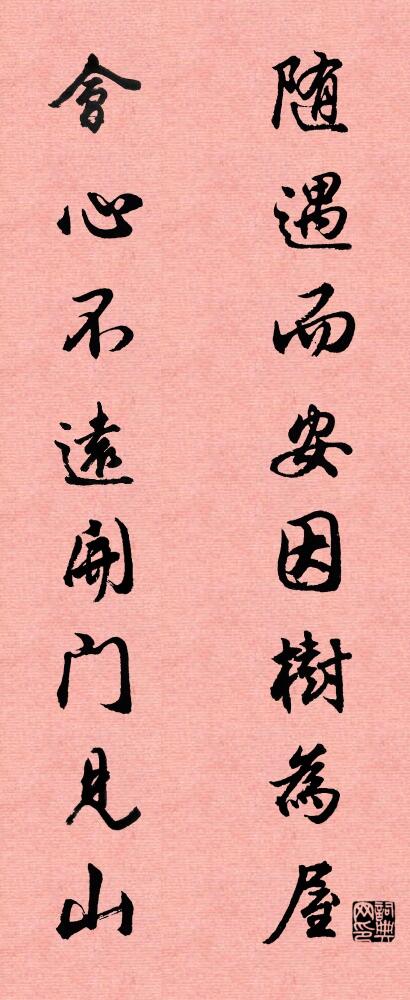 随遇而安因樹為屋
會心不遠開门見山
詞典网印